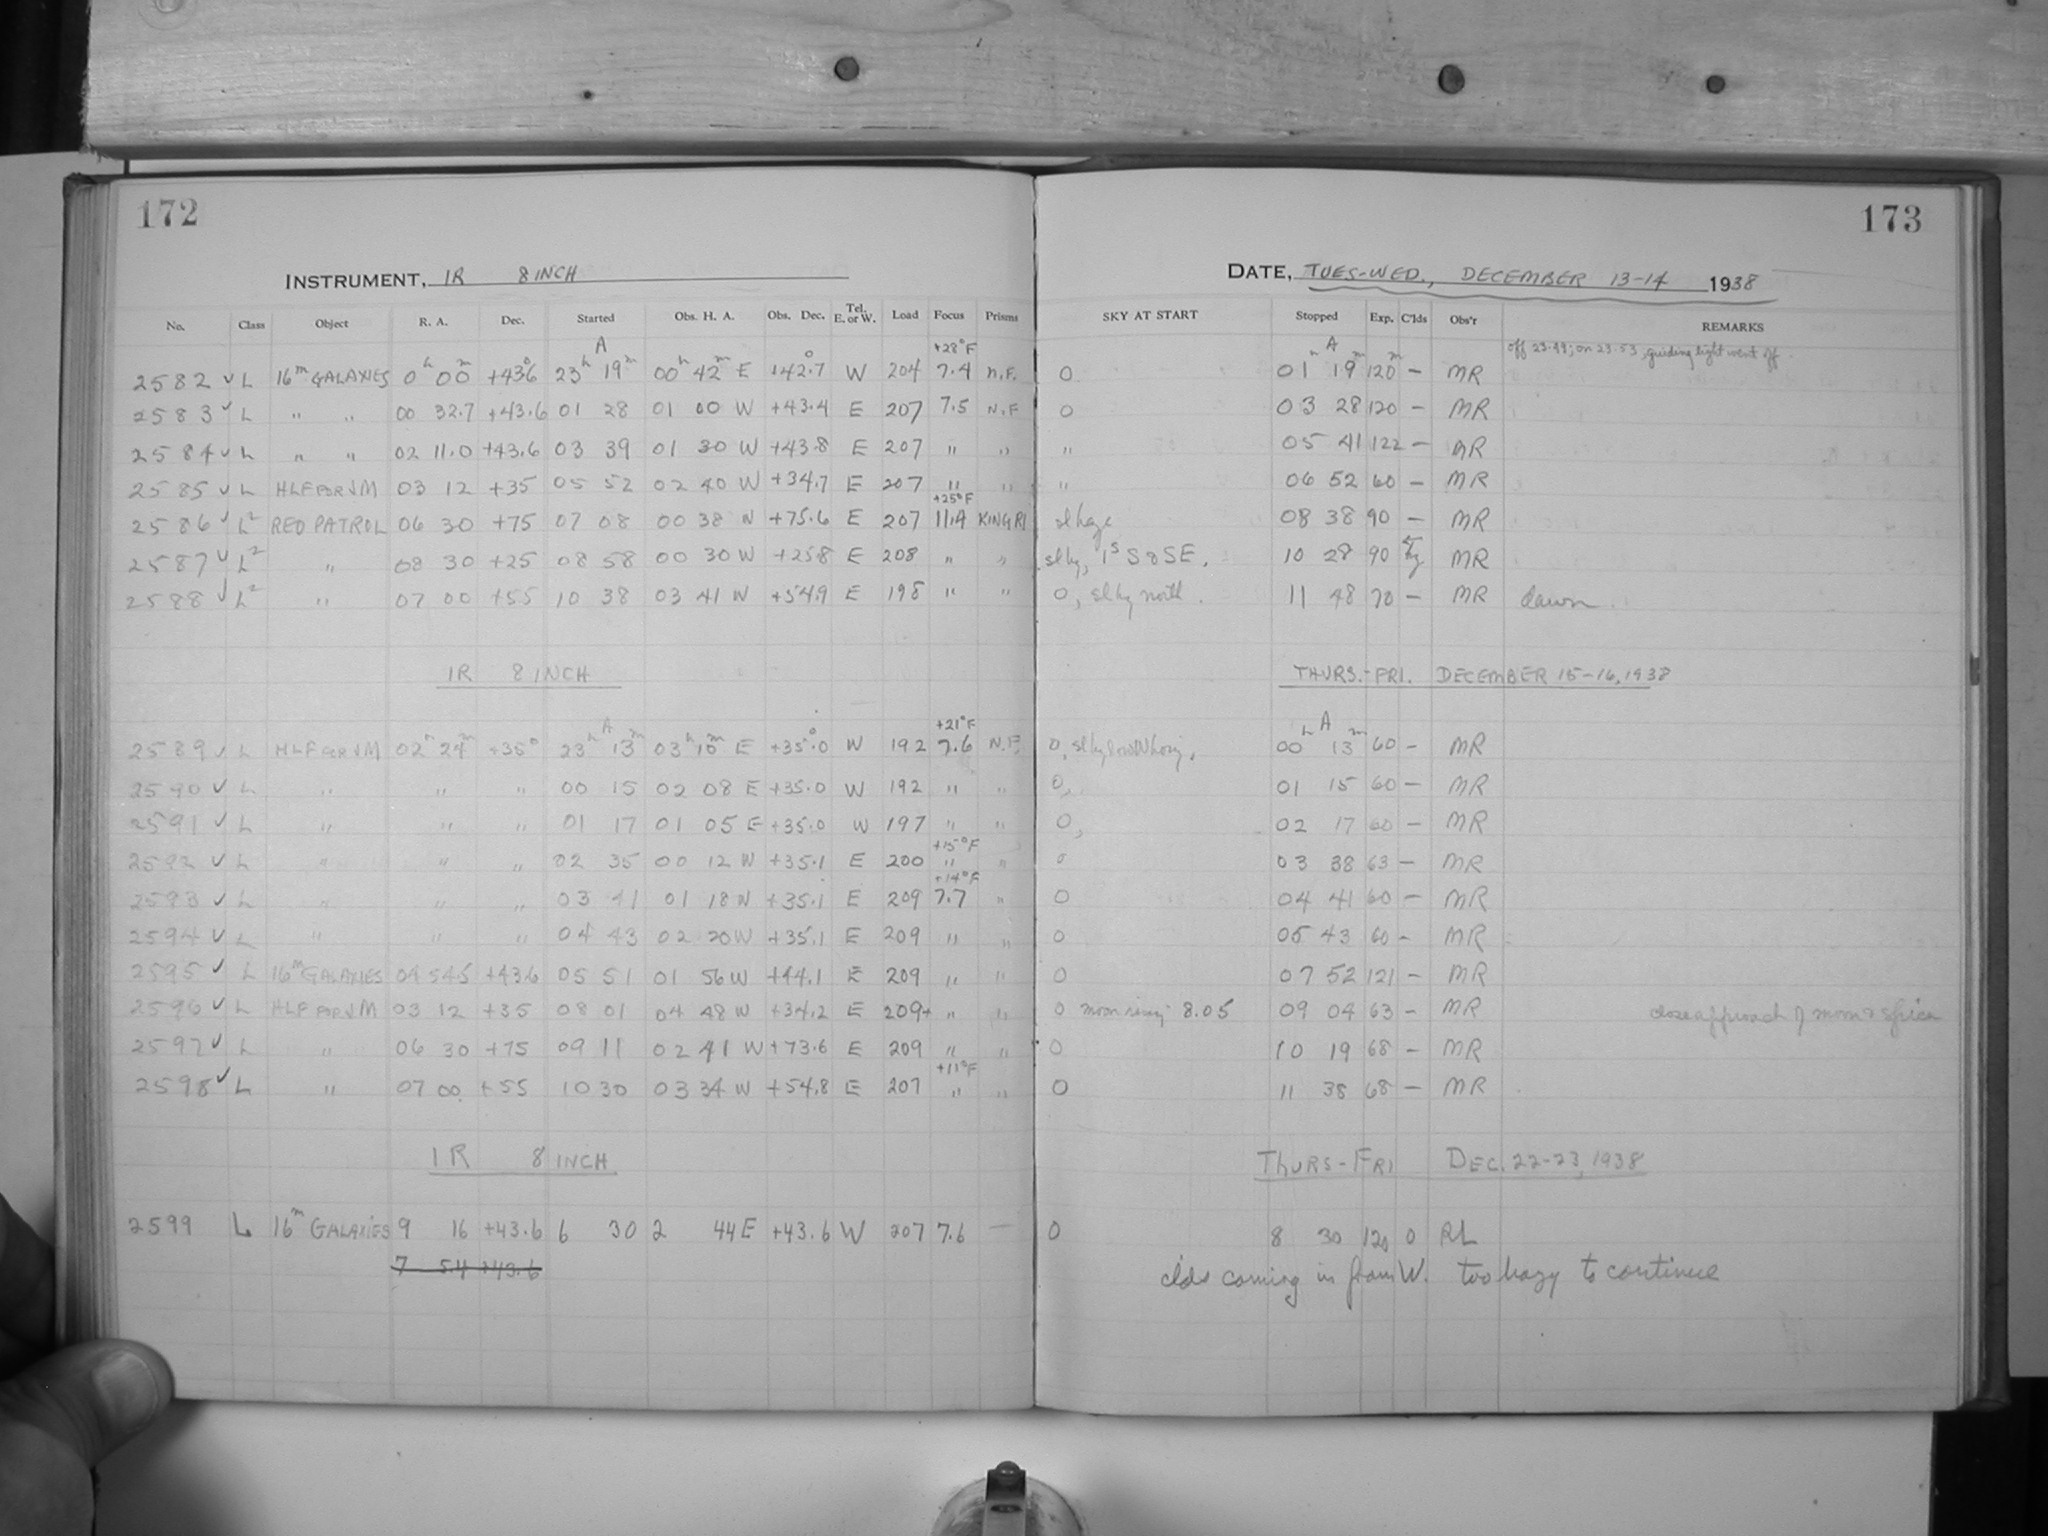 172
173
INSTRUMENT, IR 8 INCH
DATE, TUES-WED., DECEMBER 13-14 1938
No. Class Object R. A. Dec. Started Obs. H. A. Obs. Dec. Tel. E. or W. Load Focus Prisms SKY AT START Stopped Exp. C'lds Obs'r REMARKS
A +28°F A off 23.49; on 23.53, guiding light went off.
2582 ✓ L 16m GALAXIES 0h 00m +43°6 23h 19m 00h 42m E +42°.7 W 204 7.4 N.F. 0 01h 19m 120m – MR
2583 ✓ L " " 00 32.7 +43.6 01 28 01 00 W +43.4 E 207 7.5 N.F 0 03 28 120 – MR
2584 ✓ L " " 02 11.0 +43.6 03 39 01 30 W +43.8 E 207 " " " 05 41 122 – MR
2585 ✓ L HLF FOR JM 03 12 +35 05 52 02 40 W +34.7 E 207 " " " 06 52 60 – MR
+25°F
2586 ✓ L² RED PATROL 06 30 +75 07 08 00 38 W +75.6 E 207 11.4 KING RI sl haze 08 38 90 – MR
2587 ✓ L² " 08 30 +25 08 58 00 30 W +25.8 E 208 " " sl hy, 1s S & SE. 10 28 90 hy MR
2588 ✓ L² " 07 00 +55 10 38 03 41 W +54.9 E 195 " " 0, sl hy north. 11 48 70 – MR dawn.
IR 8 INCH THURS.-FRI. DECEMBER 15-16, 1938
A +21°F A
2589 ✓ L HLF FOR JM 02h 24m +35° 23h 13m 03h 10m E +35°.0 W 192 7.6 N.F. 0, sl hy low W horiz. 00h 13m 60 – MR
2590 ✓ L " " " 00 15 02 08 E +35.0 W 192 " " 0, 01 15 60 – MR
2591 ✓ L " " " 01 17 01 05 E +35.0 W 197 " " 0, 02 17 60 – MR
+15°F
2592 ✓ L " " " 02 35 00 12 W +35.1 E 200 " " 0 03 38 63 – MR
+14°F
2593 ✓ L " " " 03 41 01 18 W +35.1 E 209 7.7 " 0 04 41 60 – MR
2594 ✓ L " " " 04 43 02 20 W +35.1 E 209 " " 0 05 43 60 – MR
2595 ✓ L 16m GALAXIES 04 54.5 +43.6 05 51 01 56 W +44.1 E 209 " " 0 07 52 121 – MR
2596 ✓ L HLF FOR JM 03 12 +35 08 01 04 48 W +34.2 E 209+ " " 0 moon rising 8.05 09 04 63 – MR close approach of moon & spica
2597 ✓ L " 06 30 +75 09 11 02 41 W +73.6 E 209 " " 0 10 19 68 – MR
+11°F
2598 ✓ L " 07 00 +55 10 30 03 34 W +54.8 E 207 " " 0 11 38 68 – MR
IR 8 INCH THURS-FRI DEC. 22-23, 1938
2599 L 16m GALAXIES 9 16 +43.6 6 30 2 44 E +43.6 W 207 7.6 – 0 8 30 120 0 RL
7 5.4 +43.6 clds coming in from W. too hazy to continue